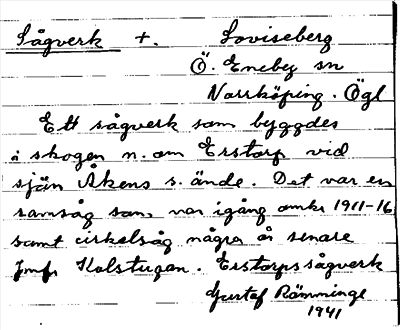 Sågverk +. Loviseberg
Ö. Eneby sn
Norrköping. Ögl
Ett sågverk som byggdes
i skogen n. om Erstorp vid
sjön Åkens s. ände. Det var en
ramsåg som var igång omkr 1911-16
samt cirkelsåg några år senare
Jmfr Kolstugan. Erstorps sågverk
Gustaf Rämminge
1941